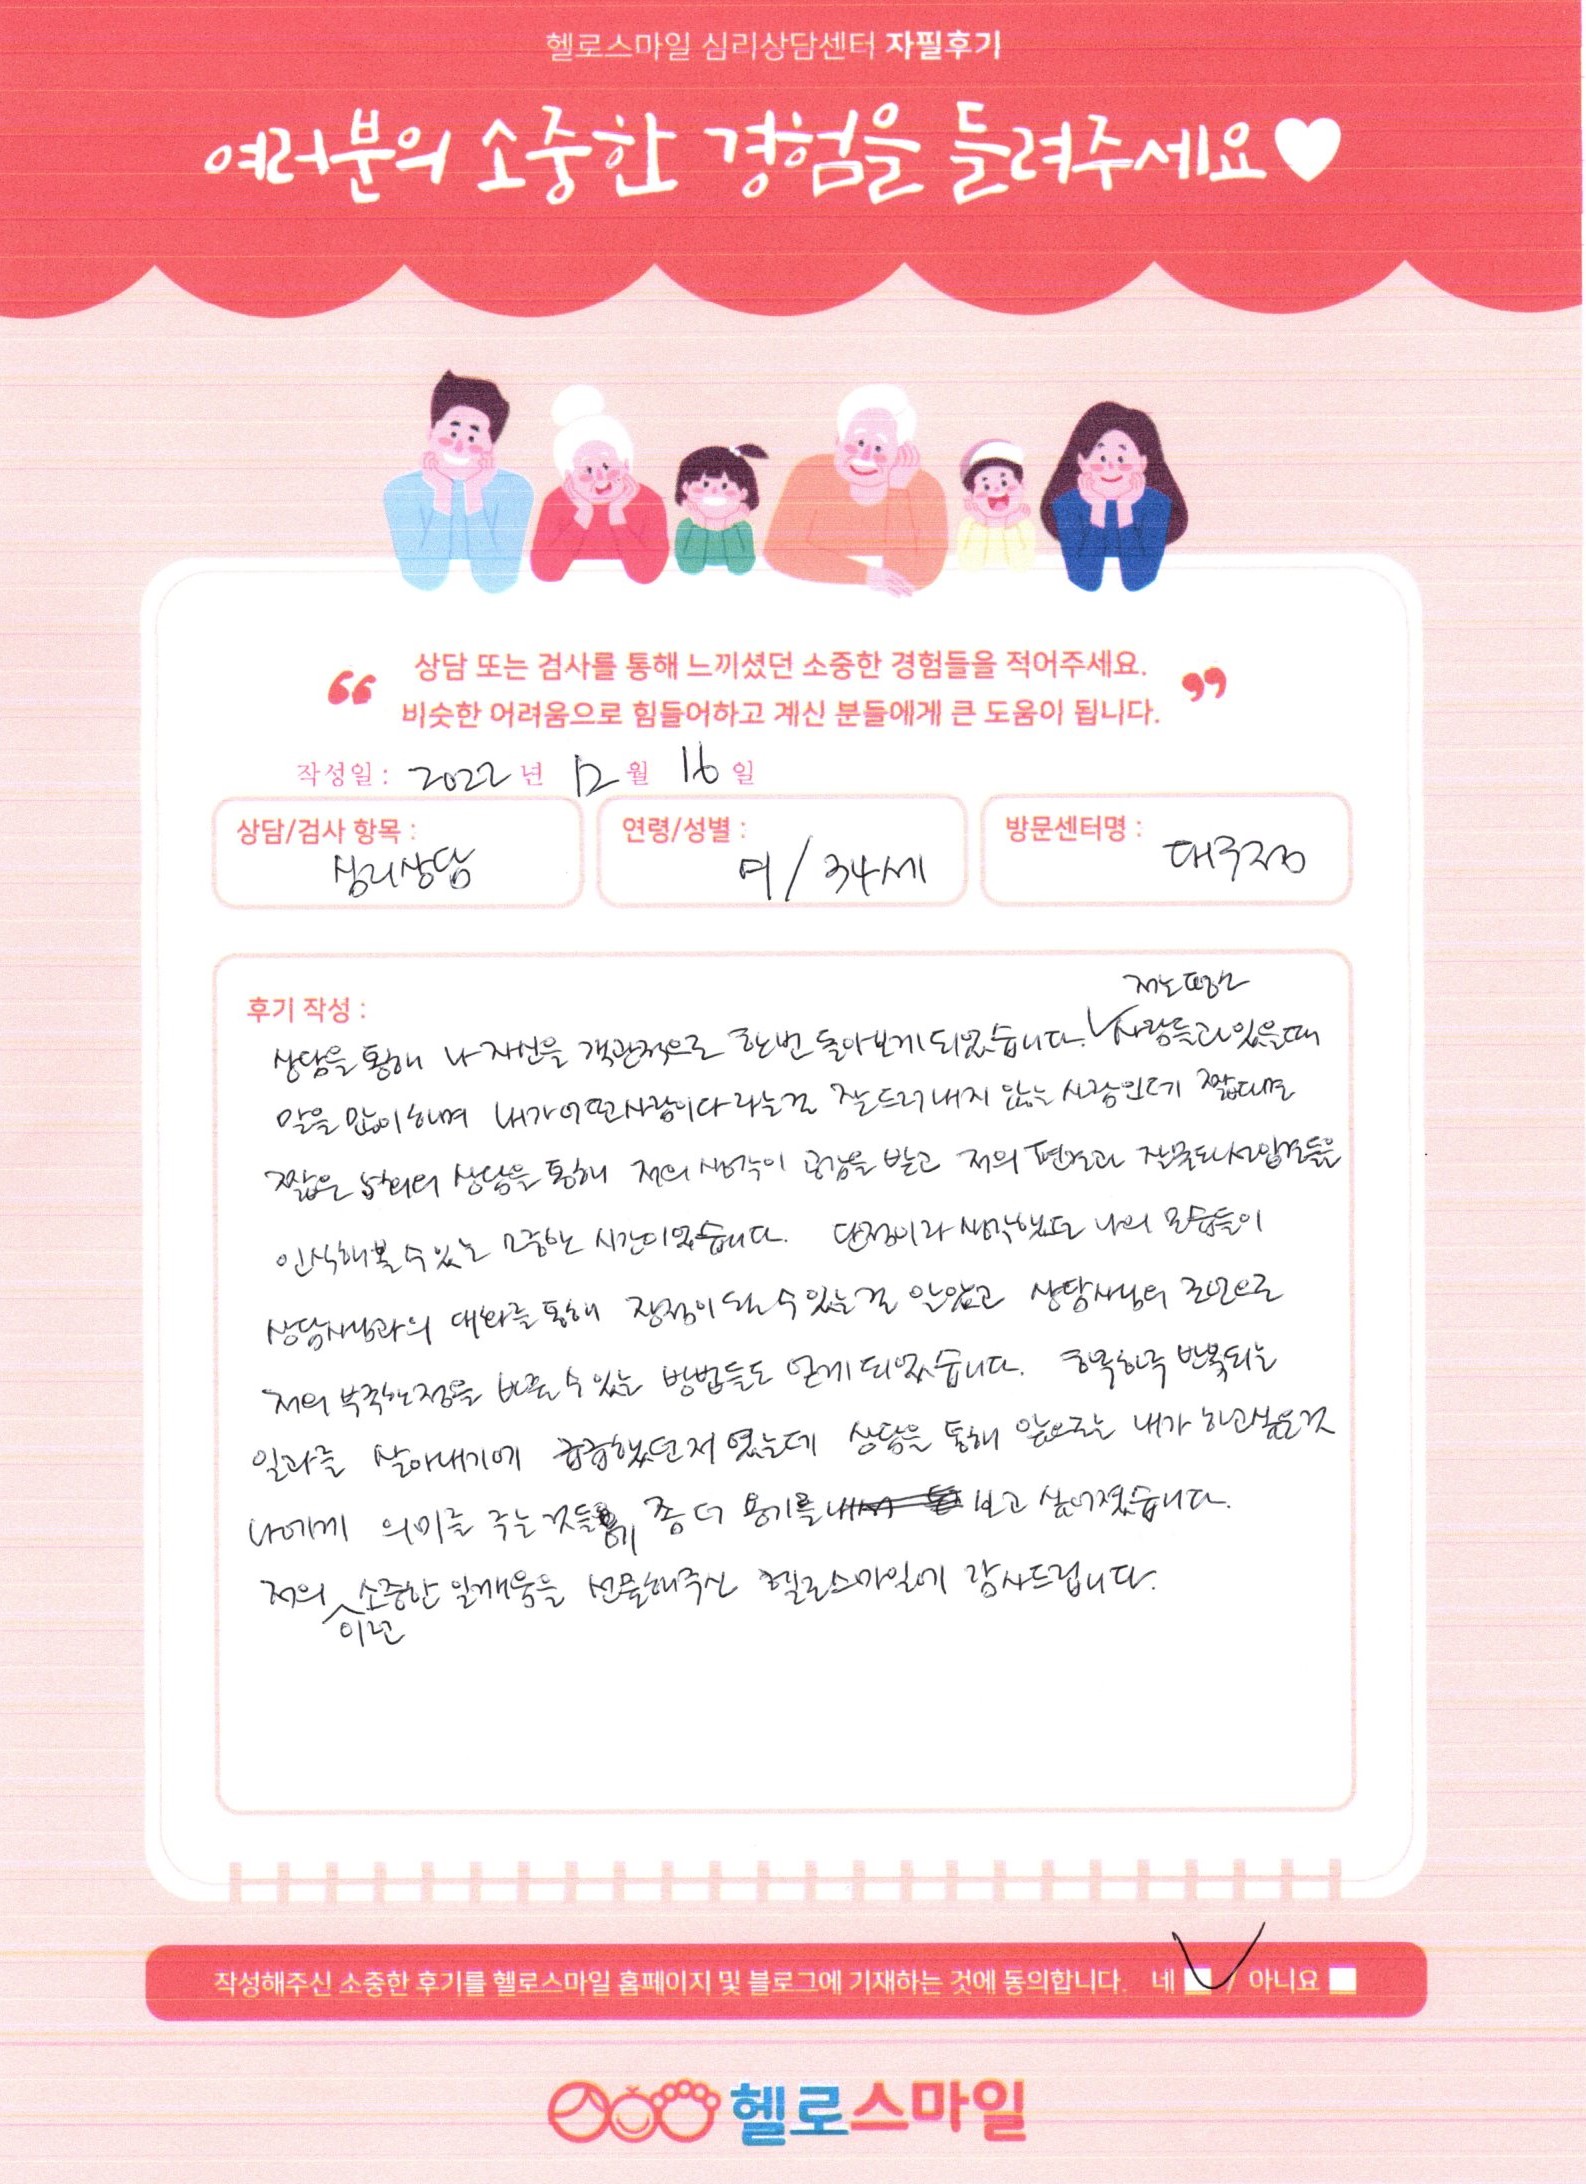 헬로스마일 심리상담센터 자필후기
여러분의 소중한 경험을 들려주세요♥
“ 상담 또는 검사를 통해 느끼셨던 소중한 경험들을 적어주세요. ”
비슷한 어려움으로 힘들어하고 계신 분들에게 큰 도움이 됩니다.
작성일 : 2022 년 12 월 16 일
상담/검사 항목 : 심리상담
연령/성별 : 여 / 34세
방문센터명 : 대구점
후기 작성 :
상담을 통해 나 자신을 객관적으로 한번 돌아보게 되었습니다. 사람들과 있을때
말을 많이하며 내가 어떤사람이다 라는걸 잘 드러내지 않는 사람인데 짧다면
짧은 상담을 통해 저의 생각이 공감을 받고 저의 편견과 잘못된
인식해볼 수 있는 시간이었습니다. 단점이라 생각했던 나의 모습들이
상담사님과의 대화를 통해 장점이 될 수 있는걸 알았고 상담사님의 조언으로
저의 부족한점을 바꿀 수 있는 방법들도 얻게 되었습니다. 하루하루 반복되는
일과를 살아내기에 급급했던 저 였는데 상담을 통해 앞으로는 내가 하고싶은것
나에게 의미를 주는 것들에 좀 더 용기를 내 보고 싶어졌습니다.
저의 이런 소중한 일깨움을 선물해주신 헬로스마일에 감사드립니다.
작성해주신 소중한 후기를 헬로스마일 홈페이지 및 블로그에 기재하는 것에 동의합니다. 네 / 아니요
헬로스마일